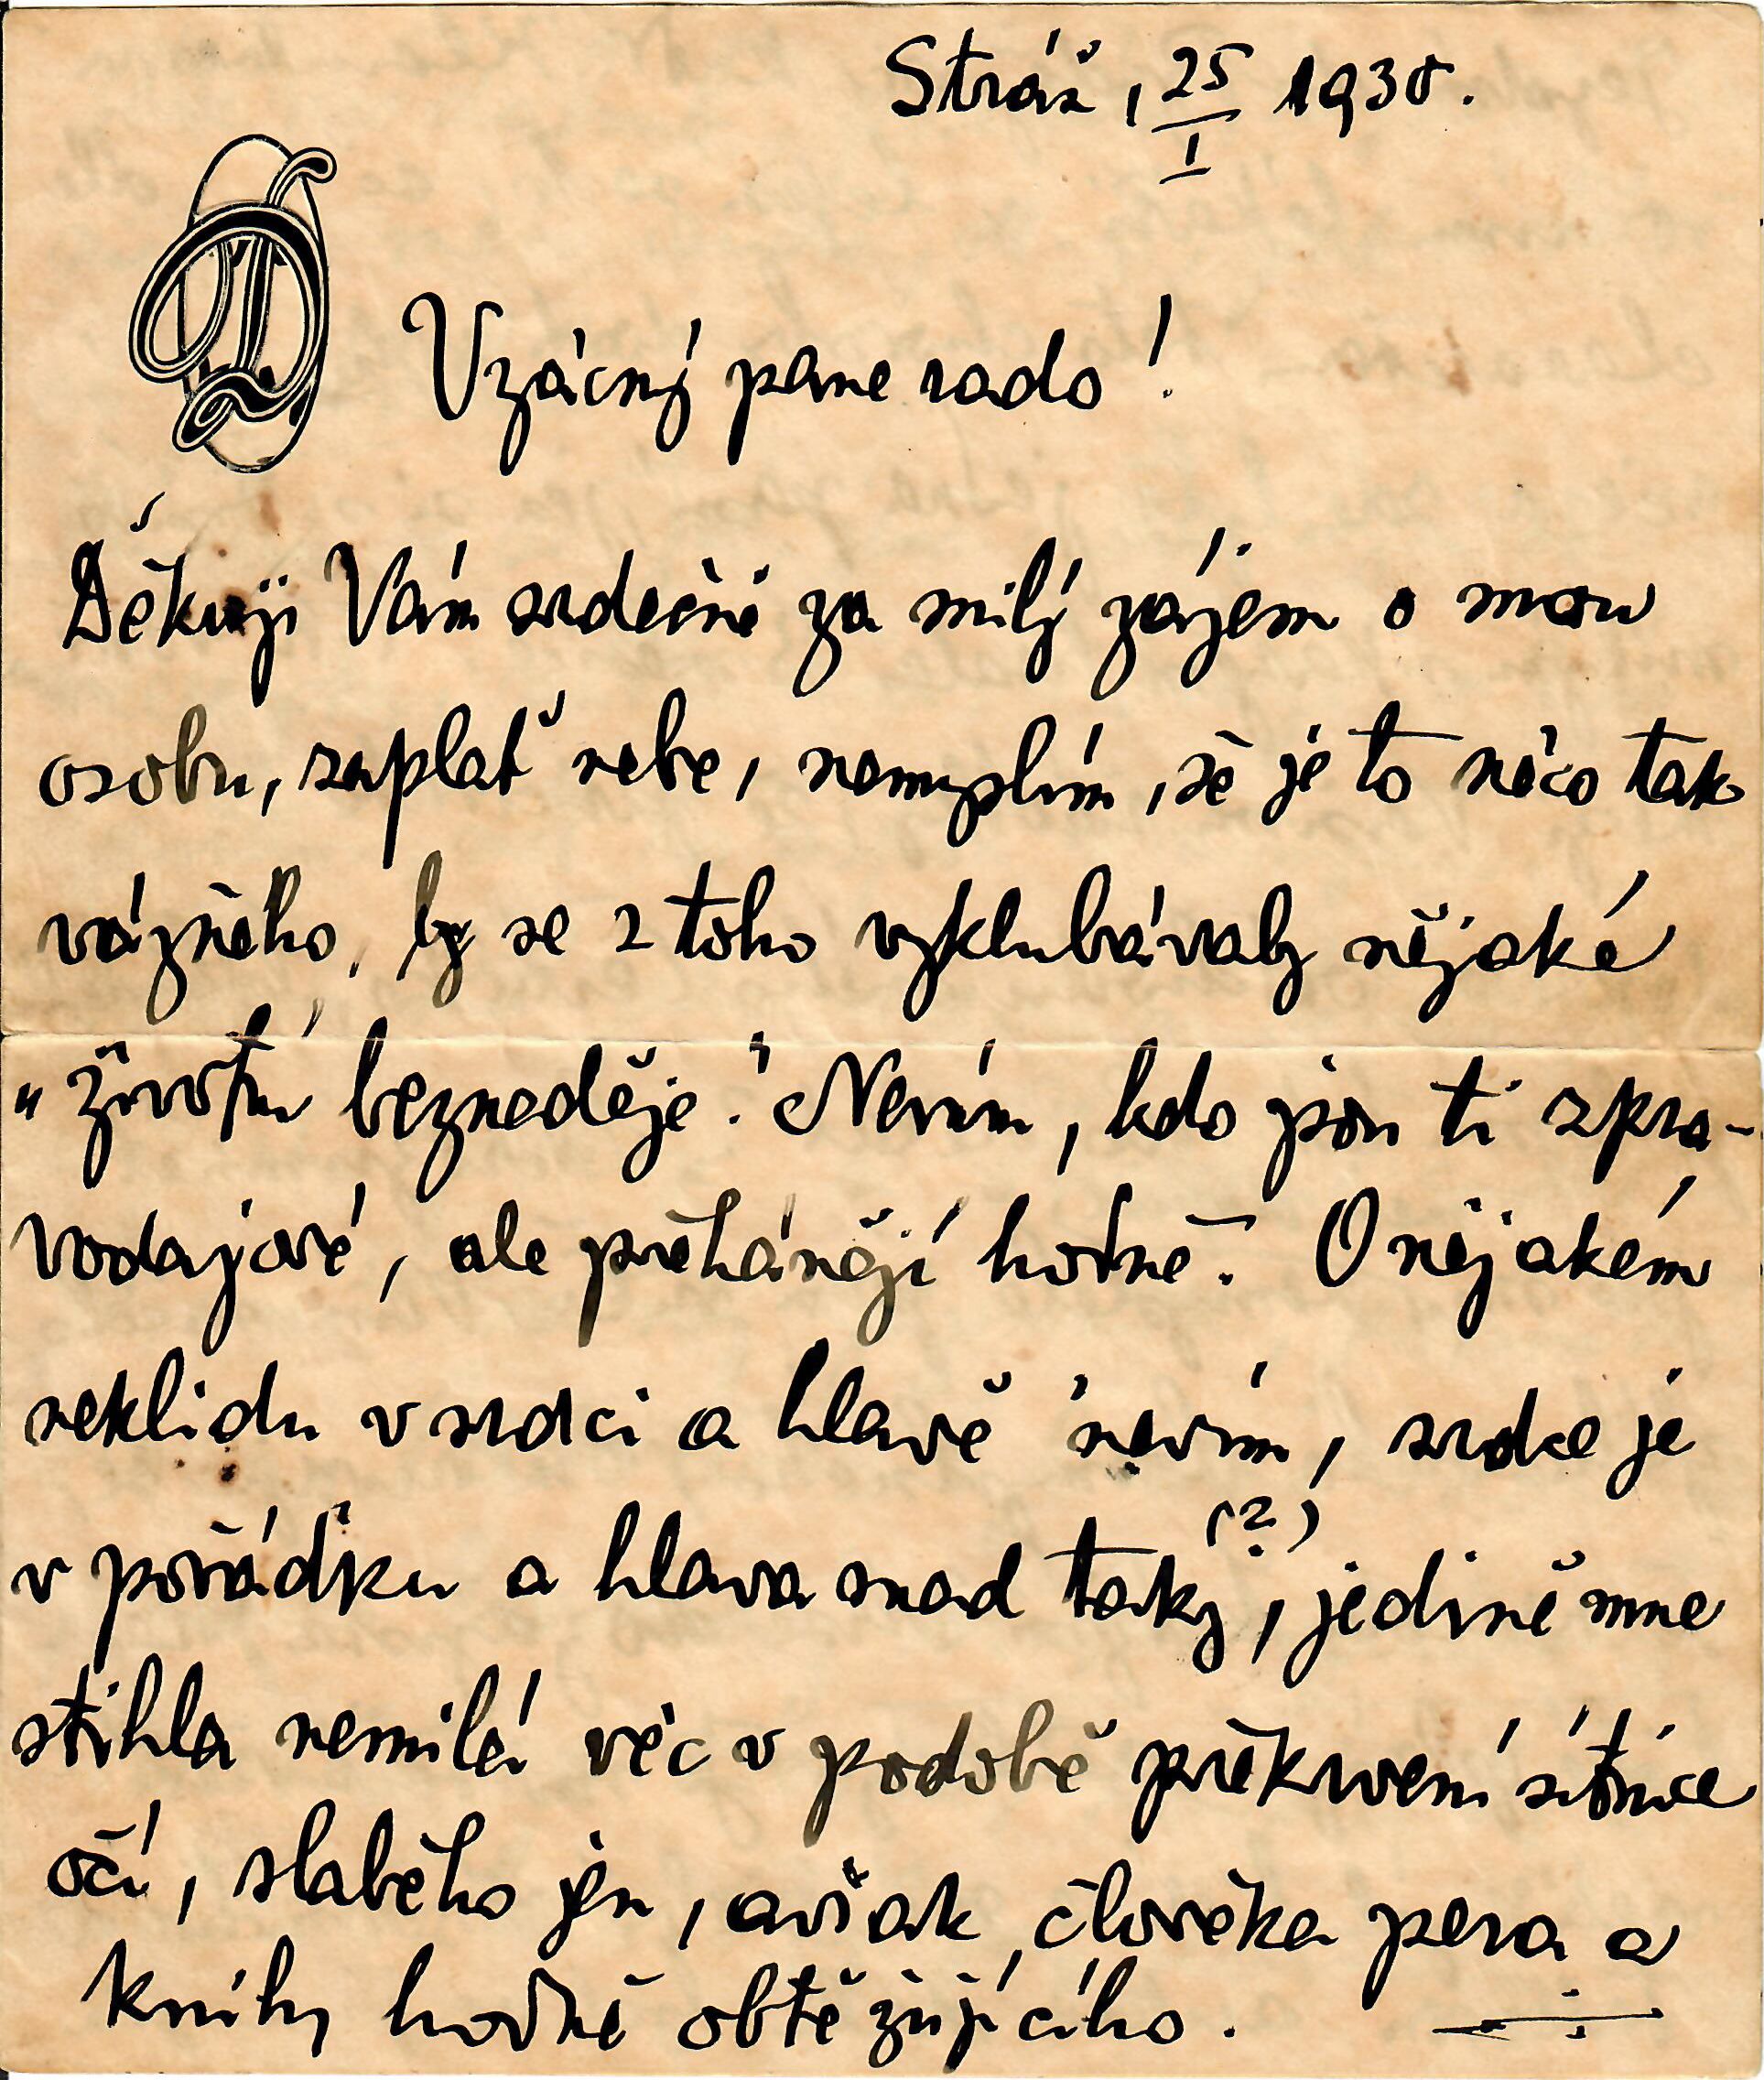 Stráž, 25/I 1930.
Vzácný pane rado!
Děkuji Vám srdečně za milý zájem o mou
osobu, zaplať nebe, nemyslím, že je to něco tak
vážného, by se z toho vyklubávaly nějaké
„životní beznaděje." Nevím, kdo jsou ti zpra-
vodajové, ale přehánějí hodně. O nějakém
neklidu v srdci a hlavě nevím, srdce je
v pořádku a hlava snad taky (?), jedině mne
stihla nemilá věc v podobě překrvení sítnice
očí, slabého jen, avšak, člověka pera a
knihy hodně obtěžujícího.